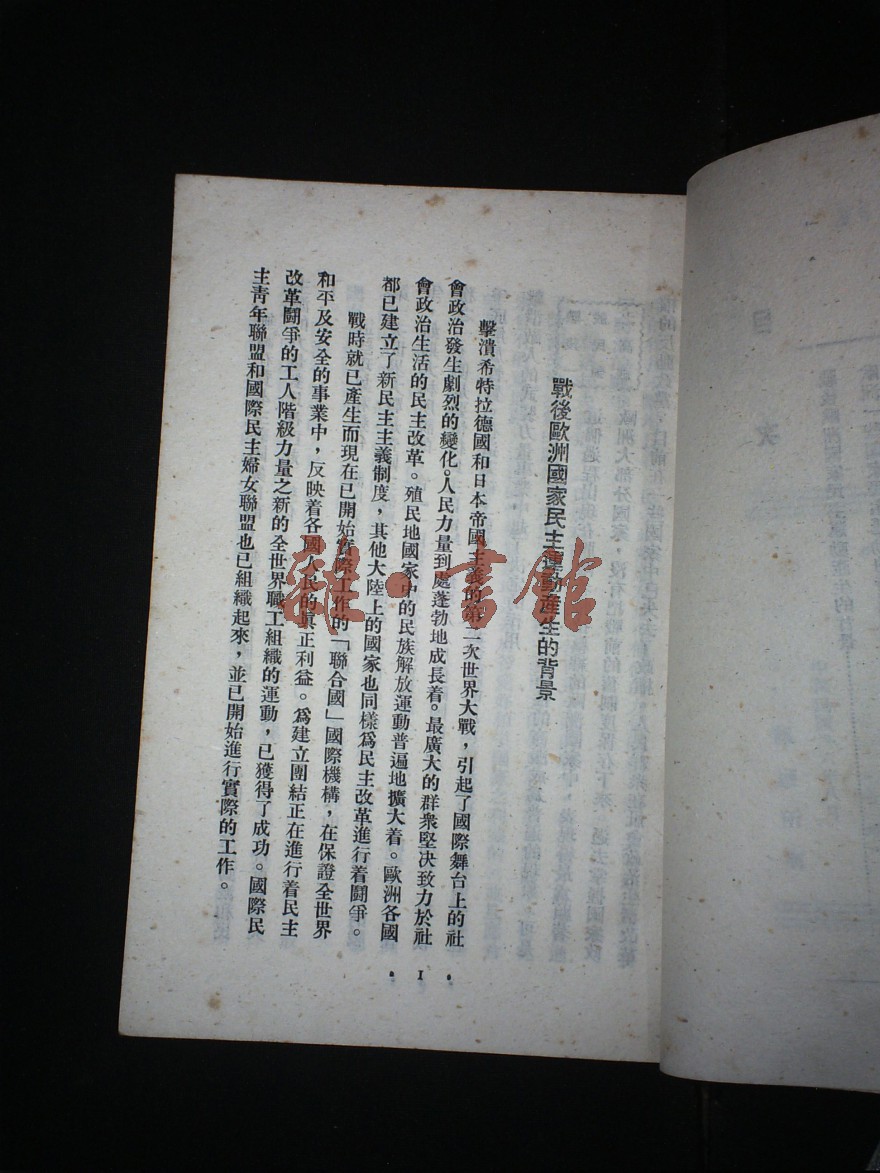 戰後歐洲國家民主運動產生的背景
擊潰希特拉德國和日本帝國主義的第二次世界大戰，引起了國際舞台上的社
會政治發生劇烈的變化。人民力量到處蓬勃地成長着。最廣大的群衆堅決致力於社
會政治生活的民主改革。殖民地國家中的民族解放運動普遍地擴大着。歐洲各國
都已建立了新民主主義制度，其他大陸上的國家也同樣爲民主改革進行着鬪爭。
戰時就已產生而現在已開始實際工作的「聯合國」國際機構，在保證全世界
和平及安全的事業中，反映着各國人民的眞正利益。爲建立團結正在進行着民主
改革鬪爭的工人階級力量之新的全世界職工組織的運動，已獲得了成功。國際民
主靑年聯盟和國際民主婦女聯盟也已組織起來，並已開始進行實際的工作。
• 1 •
雜·書館